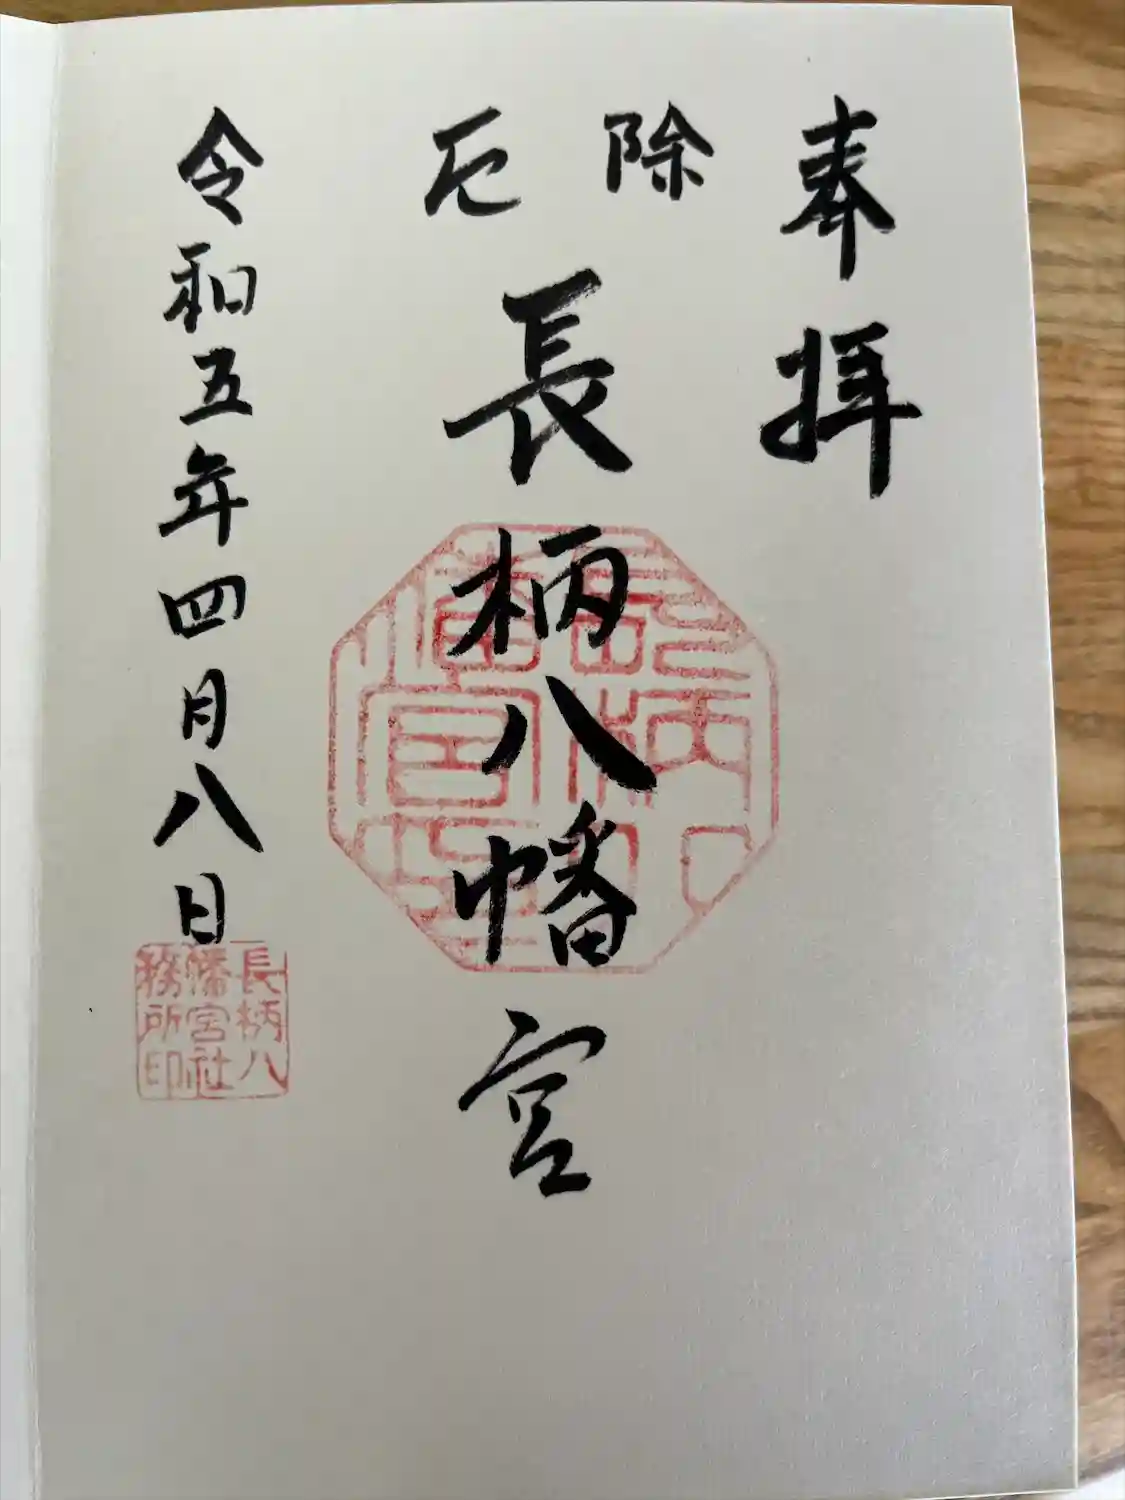 奉拝
除厄
長柄八幡宮
令和五年四月八日
長柄八
幡宮社
務所印